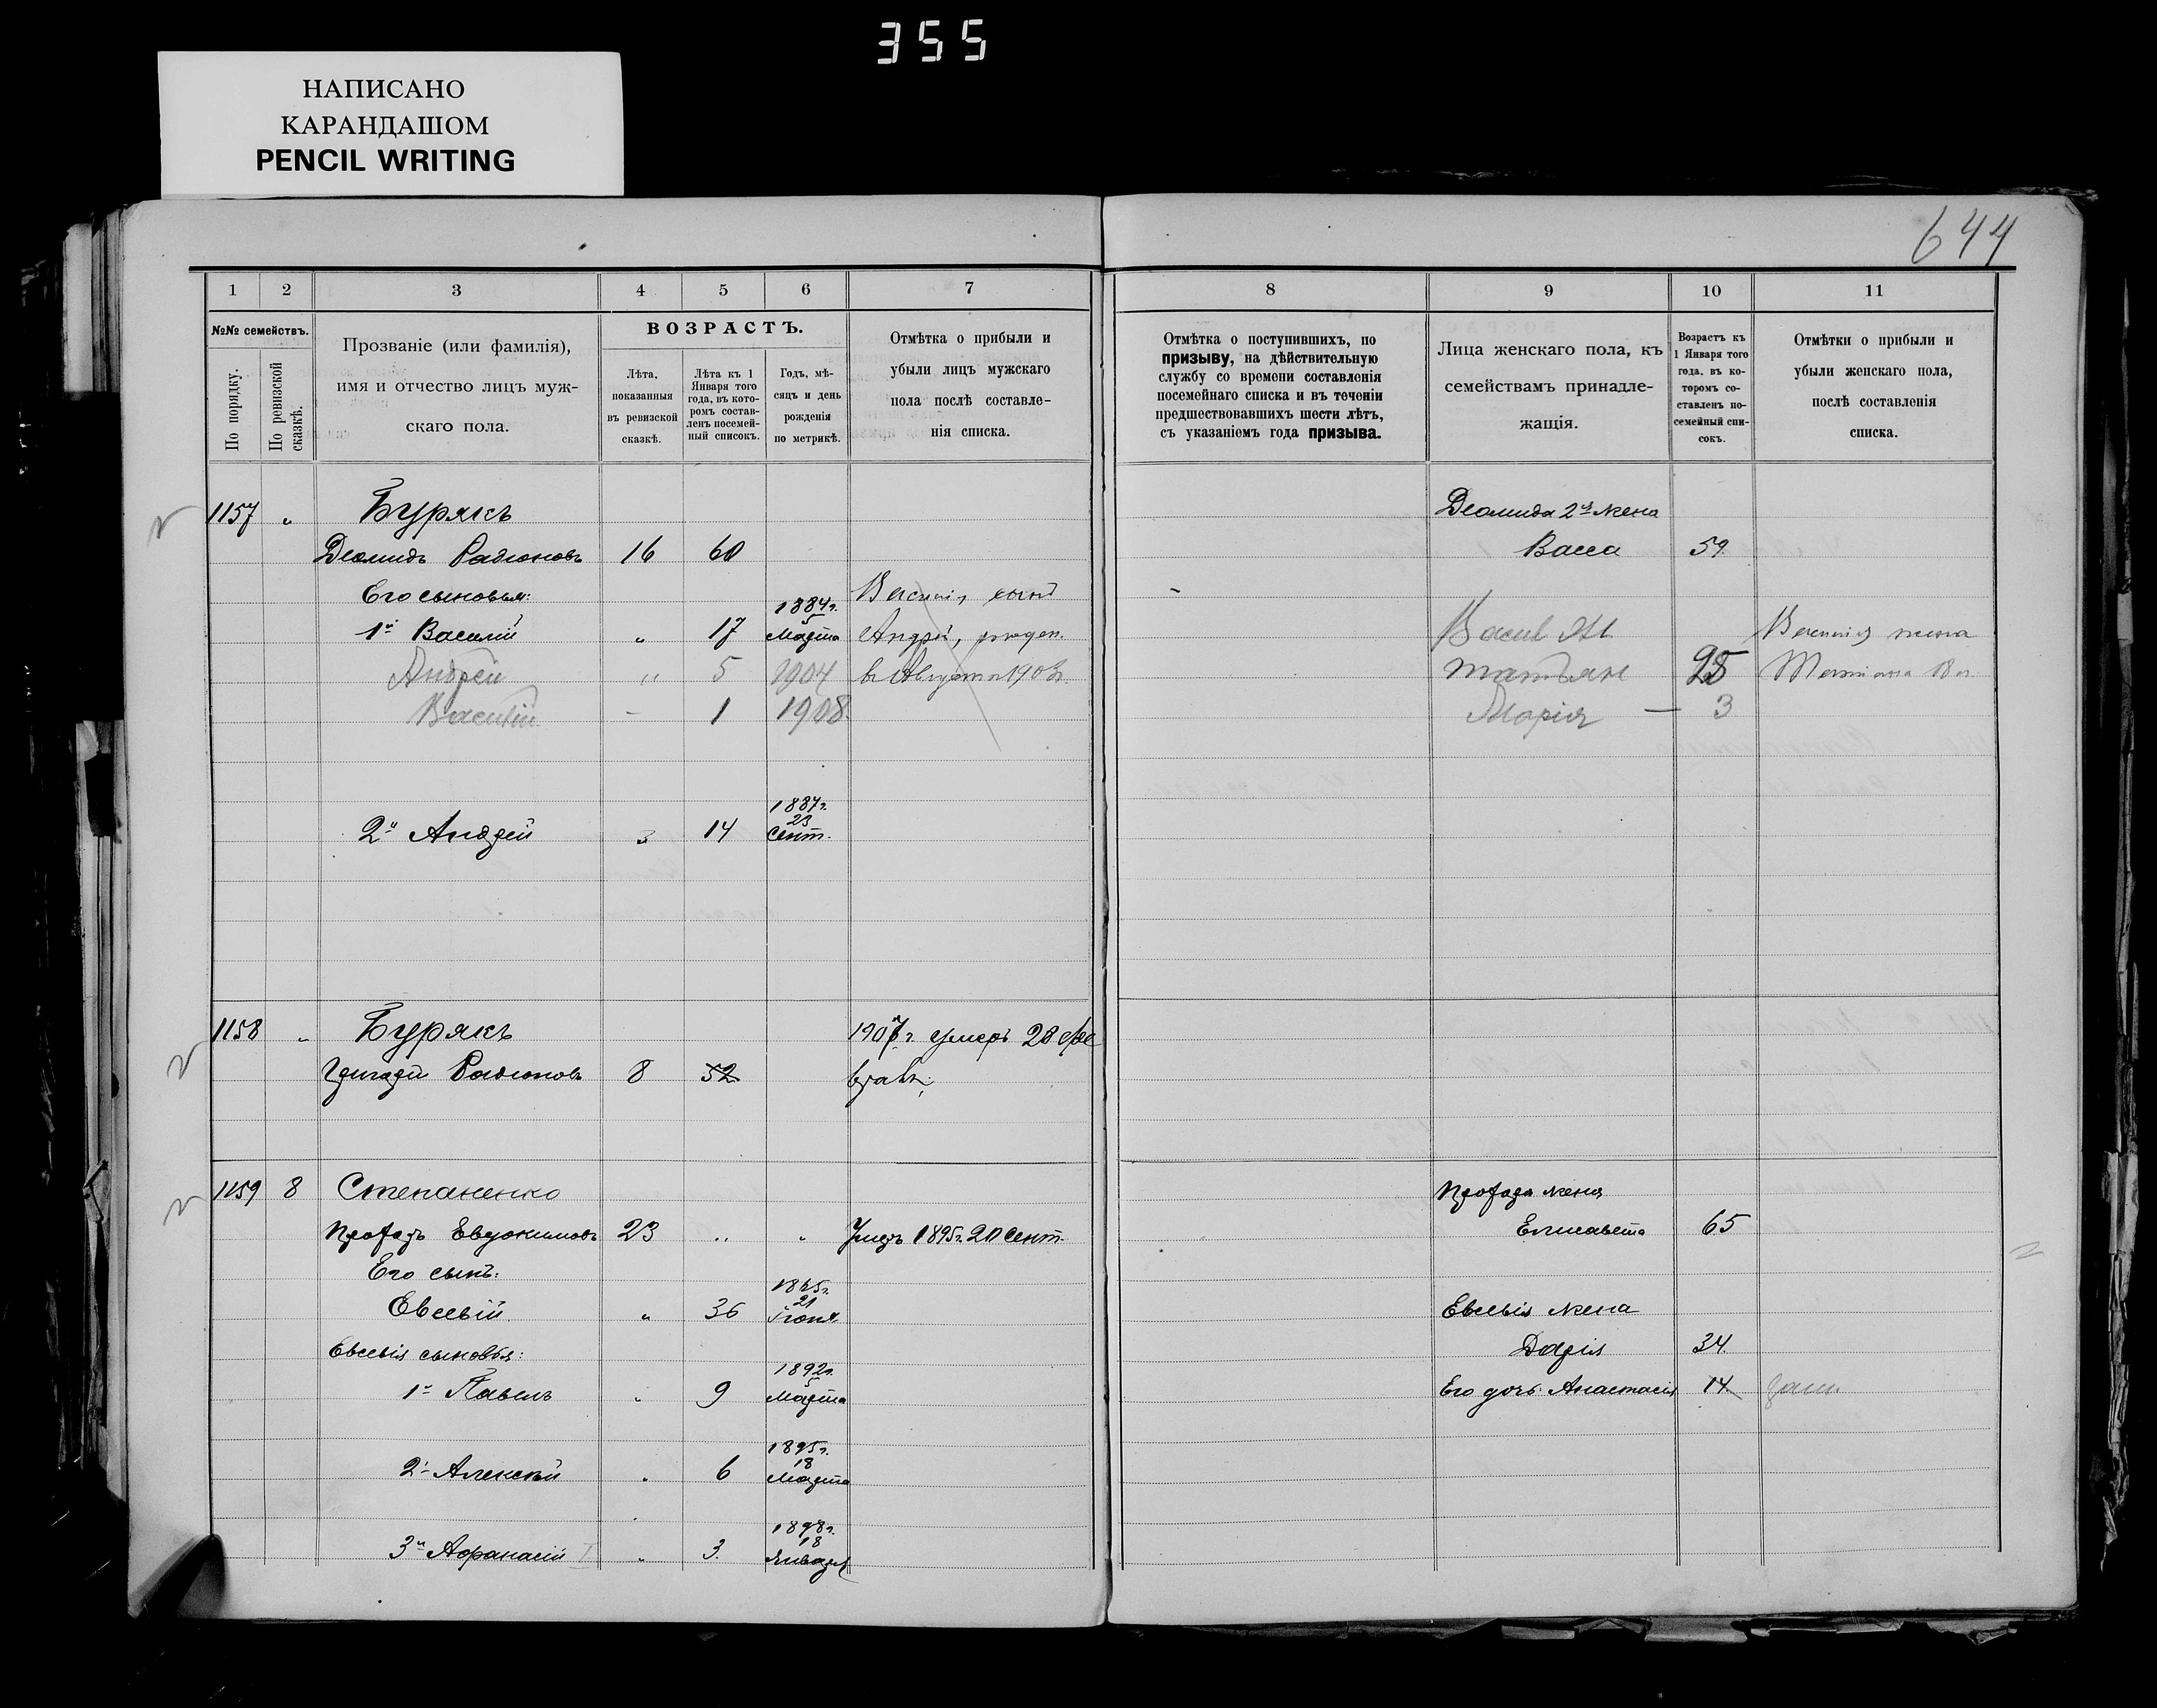 355
НАПИСАНО
КАРАНДАШОМ
PENCIL WRITING
644
1 2 3 4 5 6 7 8 9 10 11
№№ семействъ.
По порядку.
По ревизской сказкѣ.
Прозваніе (или фамилія),
имя и отчество лицъ муж-
скаго пола.
ВОЗРАСТЪ.
Лѣта,
показанныя
въ ревизской
сказкѣ.
Лѣта къ 1
Января того
года, въ кото-
ромъ состав-
ленъ посемей-
ный списокъ.
Годъ, мѣ-
сяцъ и день
рожденія
по метрикѣ.
Отмѣтка о прибыли и
убыли лицъ мужскаго
пола послѣ составле-
нія списка.
Отмѣтка о поступившихъ, по
призыву, на дѣйствительную
службу со времени составленія
посемейнаго списка и въ теченіи
предшествовавшихъ шести лѣтъ,
съ указаніемъ года призыва.
Лица женскаго пола, къ
семействамъ принадле-
жащія.
Возрастъ къ
1 Января того
года, въ ко-
торомъ со-
ставленъ по-
семейный спи-
сокъ.
Отмѣтки о прибыли и
убыли женскаго пола,
послѣ составленія
списка.
1157 " Бурякъ Деомида 2я жена
Деомидъ Радіоновъ 16 60 Васса 59
Его сыновья: Василія сынъ
1й Василій " 17 1884г. 5 Марта Андрей, рожден. Васил Василія жена
Андрей " 5 1904 въ Августа 1903г. Татьяна 25 Татіана 18 л
Василій - 1 1908 Марія — 3
2й Андрей " 14 1887г. 23 Сент.
1158 " Бурякъ 1907г. умеръ 28 Фе
Григорій Радіоновъ 8 52 враля;
1159 8 Степаненко Прохора жена
Прохоръ Евдокимовъ 23 " " Умеръ 1895г. 20 Сент. Елисавета 65
Его сынъ:
Евсевій " 36 21 Іюня Евсевія жена
Евсевія сыновья: Дарія 34
1й Павелъ " 9 1892г. 5 Марта Его дочь Анастасія 14 зам.
2й Алексѣй " 6 1895г. 18 Марта
3й Афанасій " 3 1898г. 18 Января